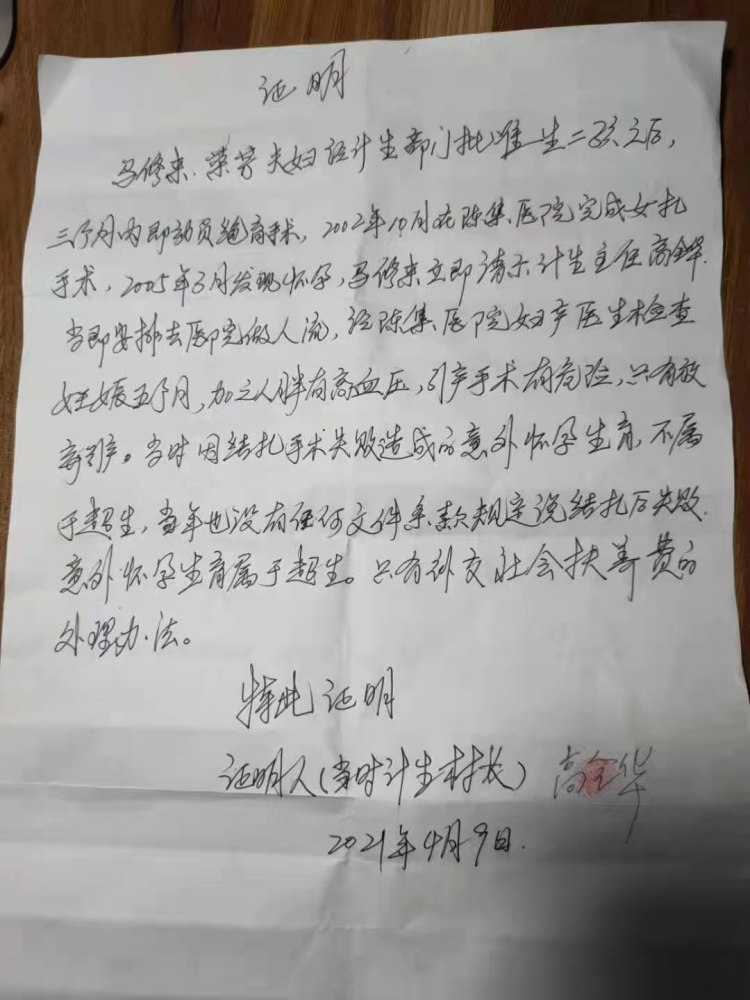 证明
马修来、荣芳夫妇经计生部门批准生二孩之后,
三个月内即动员绝育手术, 2002年10月在陈集医院完成女扎
手术, 2005年3月发现怀孕, 马修来立即请示计生主任高金华.
当即安排去医院做人流, 经陈集医院妇产医生检查
妊娠五个月, 加之人胖有高血压, 引产手术有危险, 只有放
弃引产。当时因结扎手术失败造成的意外怀孕生育, 不属
于超生, 当年也没有任何文件条款规定说结扎后失败.
意外怀孕生育属于超生。只有补交社会扶养费的
处理办法。
特此证明
证明人(当时计生村长) 高金华
2021年4月9日.